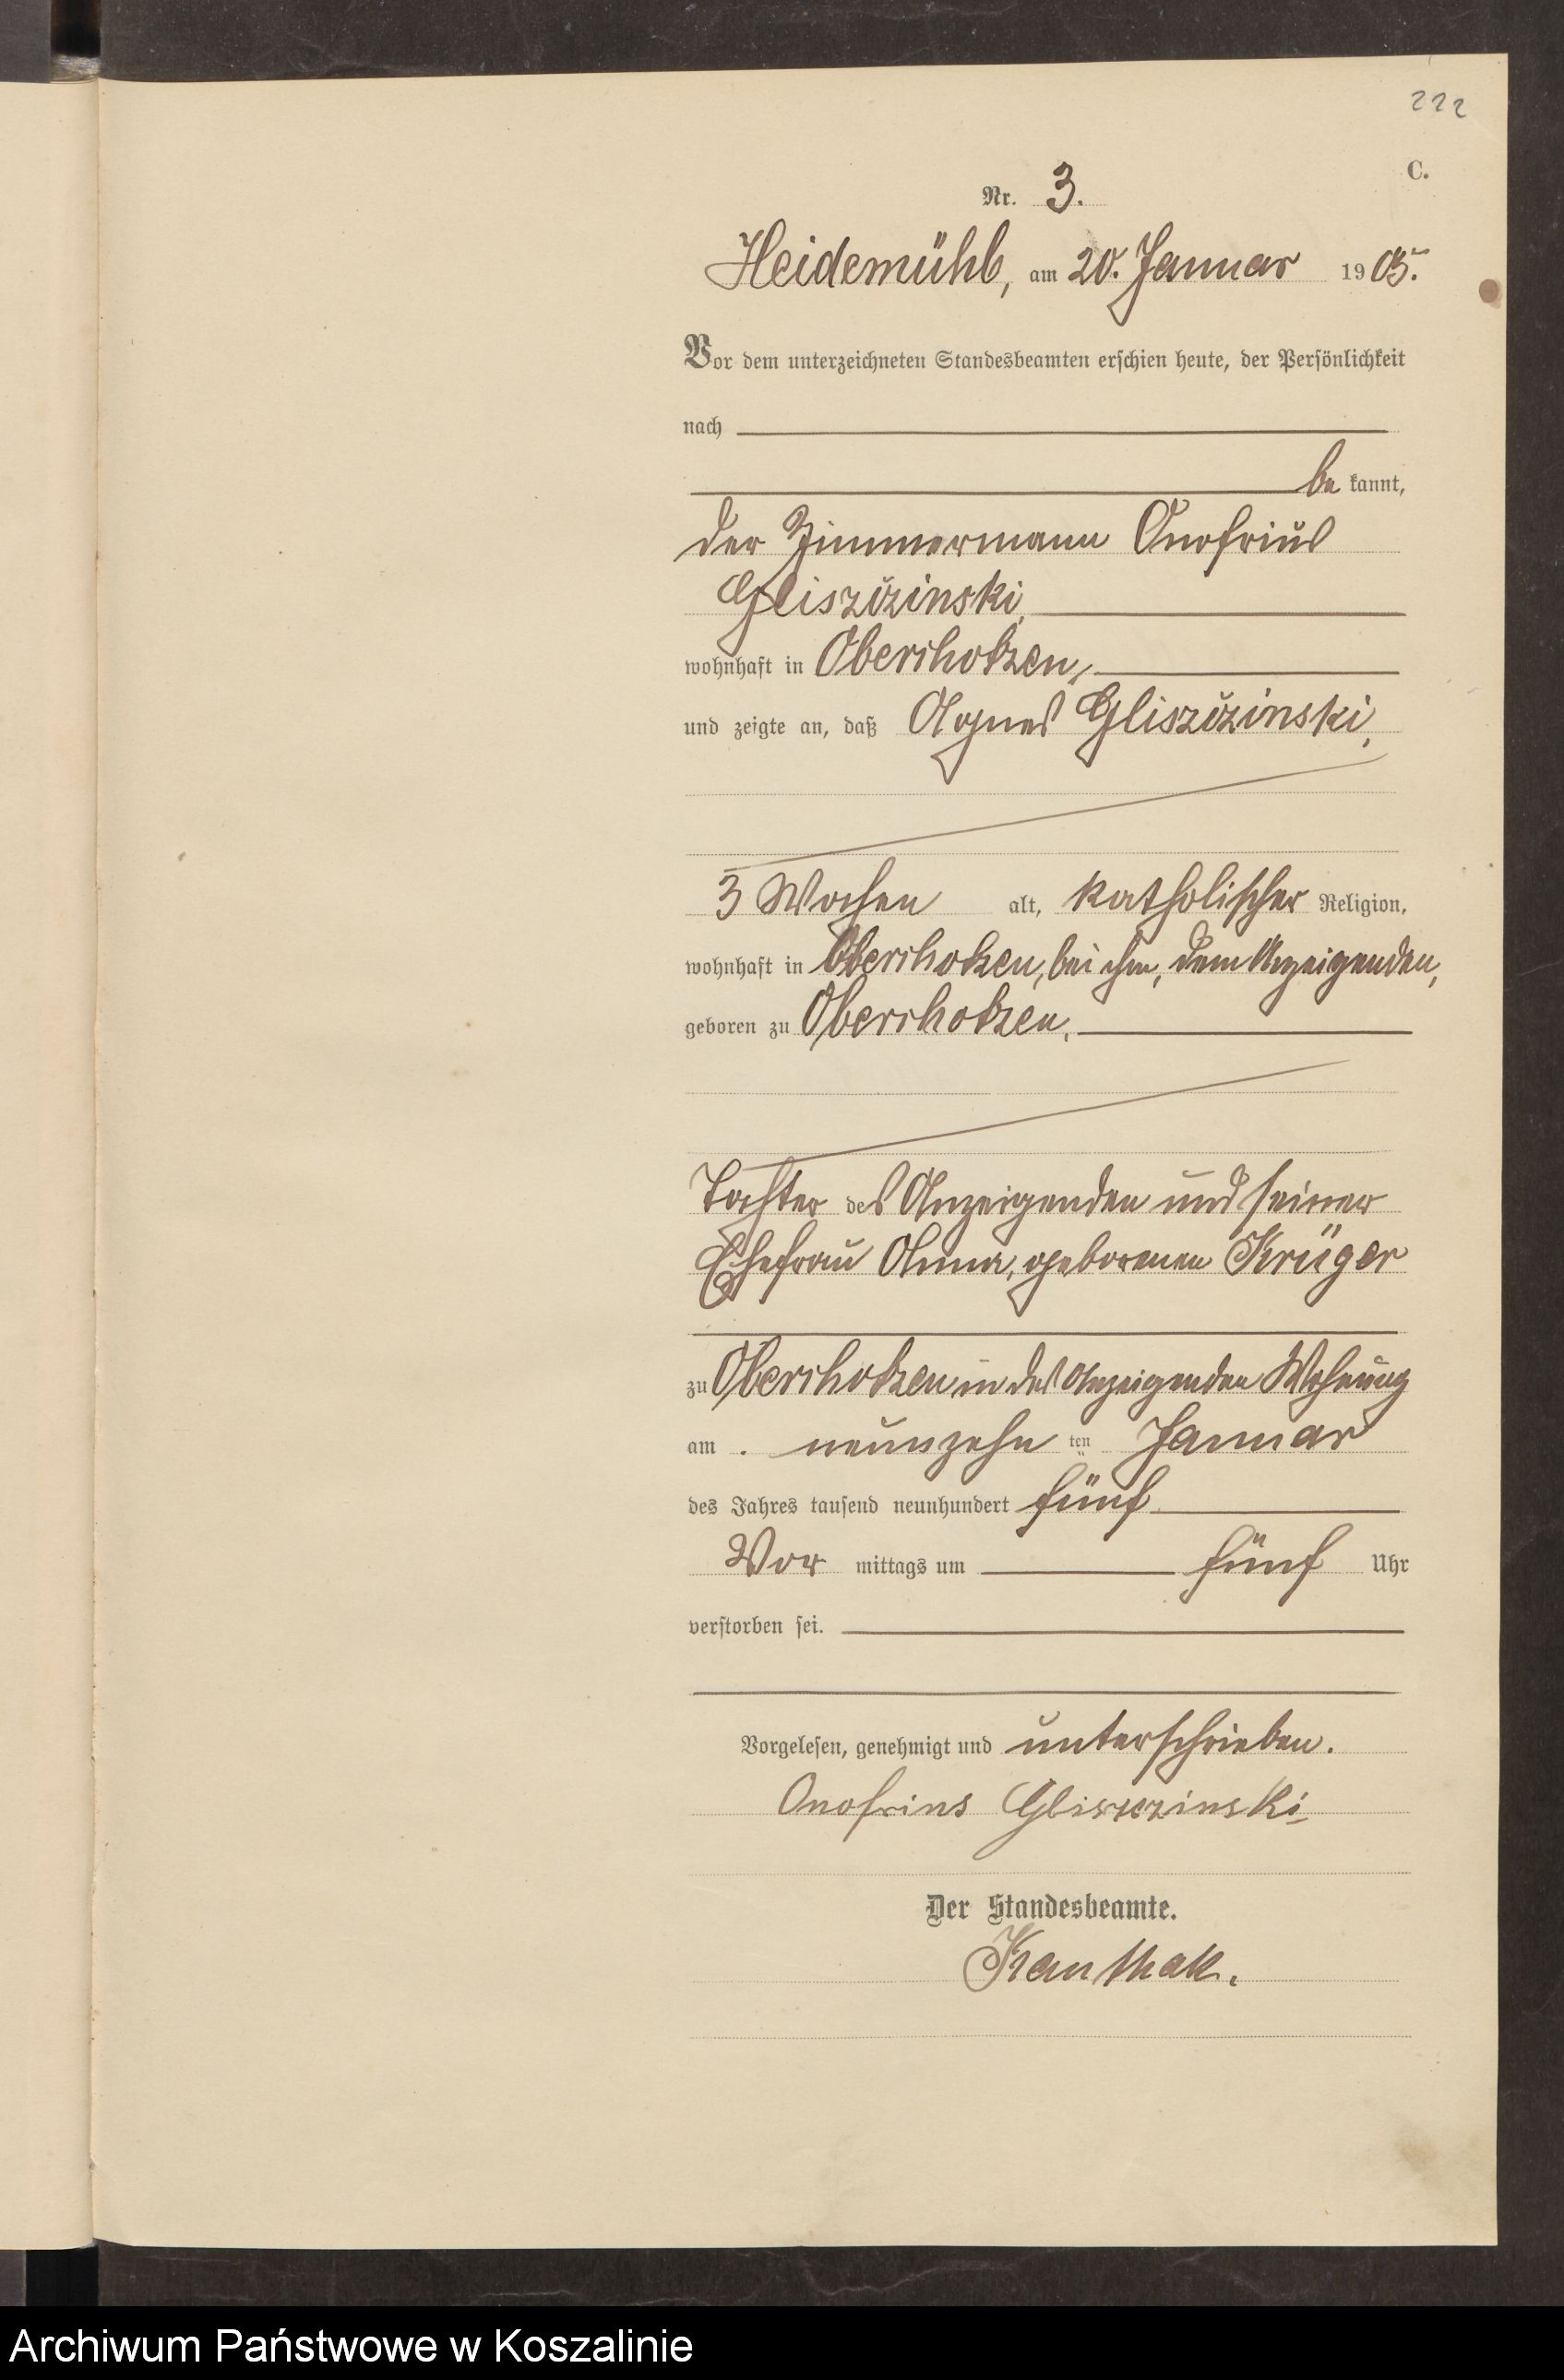 222
C.
Nr. 3.
Heidemühl, am 20. Januar 1905.
Vor dem unterzeichneten Standesbeamten erschien heute, der Persönlichkeit
nach
be kannt,
der Zimmermann Onofrius
Gliszizinski,
wohnhaft in Oberchotzen,
und zeigte an, daß Agnes Gliszizinski,
3 Wochen alt, katholischer Religion,
wohnhaft in Oberchotzen, bei ihm, dem Anzeigenden,
geboren zu Oberchotzen,
Tochter des Anzeigenden und seiner
Ehefrau Anna, geborenen Krüger
zu Oberchotzen in des Anzeigenden Wohnung
am neunzehn ten Januar
des Jahres tausend neunhundert fünf
Vor mittags um fünf Uhr
verstorben sei.
Vorgelesen, genehmigt und unterschrieben.
Onofrius Gliszczinski
Der Standesbeamte.
Kanthak.
Archiwum Państwowe w Koszalinie